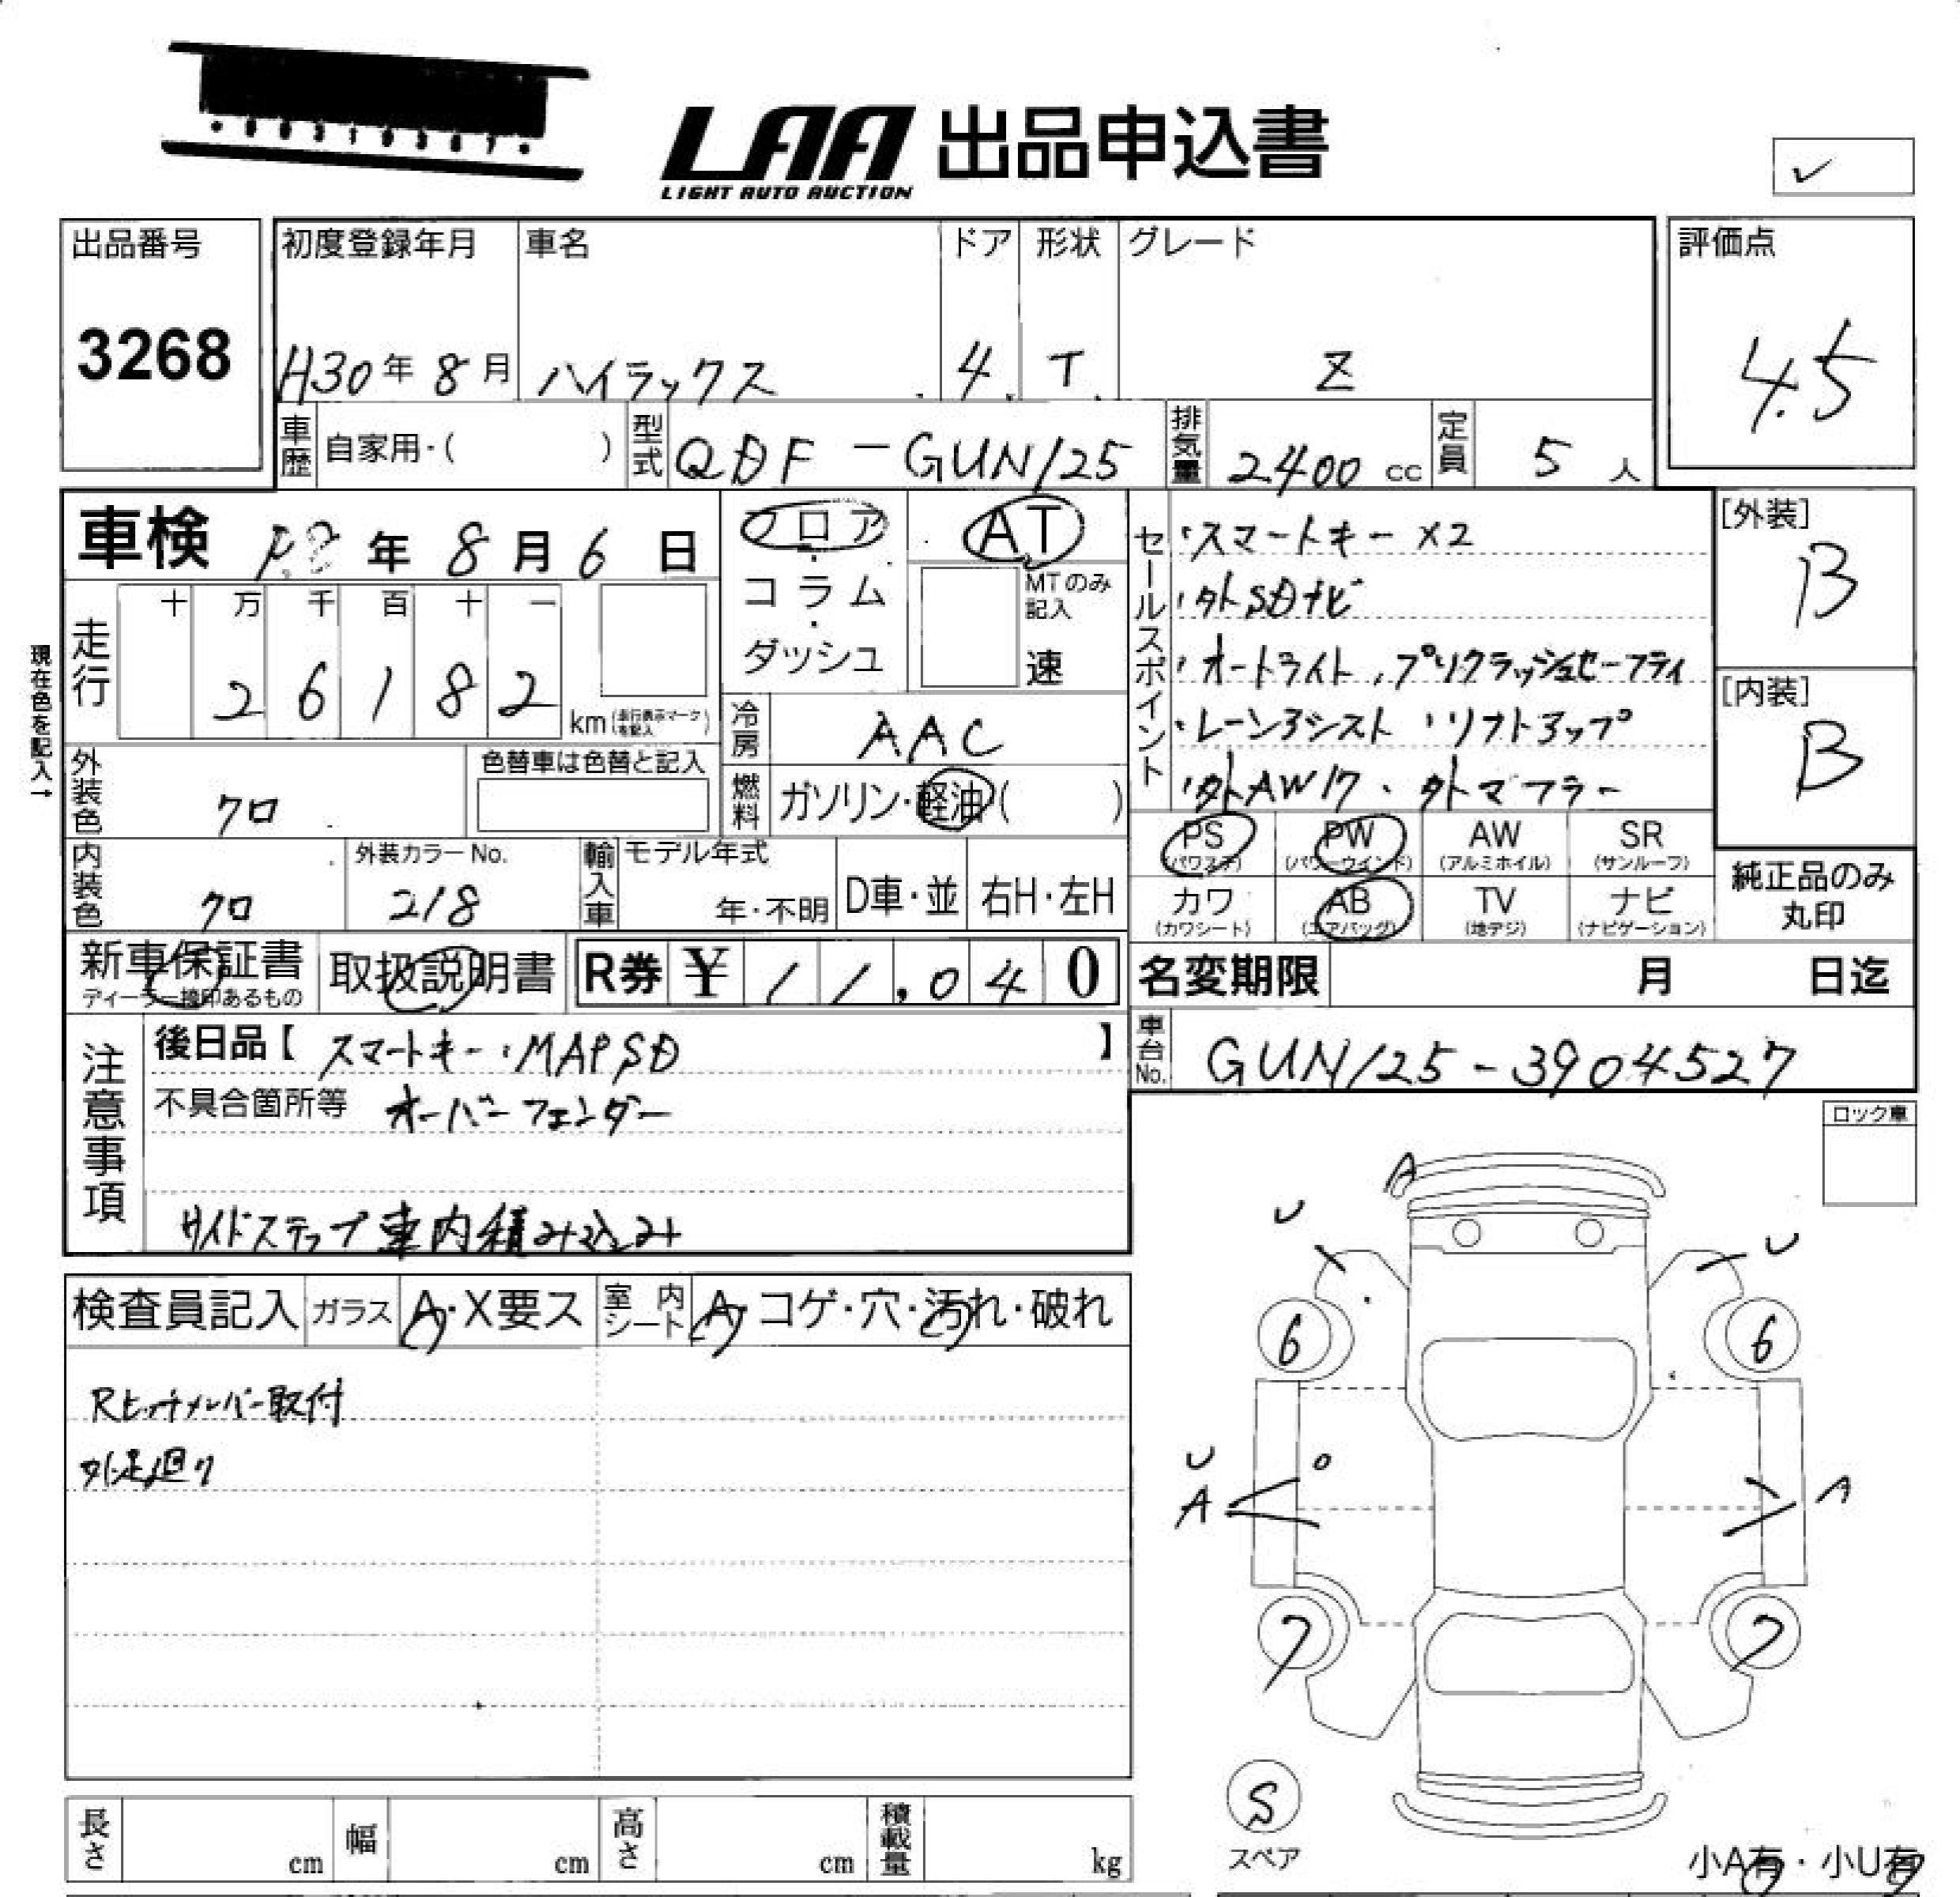 LAA 出品申込書
LIGHT AUTO AUCTION
✓
出品番号
3268
初度登録年月
H30年8月
車名
ハイラックス
ドア
4
形状
T
グレード
Z
評価点
4.5
車歴
自家用・( )
型式
QDF-GUN125
排気量
2400 cc
定員
5 人
車検 年8月6日
走行
十 万 千 百 十 一
2 6 1 8 2
km(走行表示マークを記入)
現在色を記入→
外装色
クロ
色替車は色替と記入
内装色
クロ
外装カラーNo.
218
フロア
・
コラム
・
ダッシュ
AT
MTのみ記入
速
冷房
AAC
燃料
ガソリン・軽油・( )
輸入車
モデル年式
年・不明
D車・並
右H・左H
セールスポイント
・スマートキー ×2
・外SDナビ
・オートライト ・プリクラッシュセーフティ
・レーンアシスト ・リフトアップ
・外AW17 ・外マフラー
[外装]
B
[内装]
B
PS
(パワステ)
PW
(パワーウインド)
AW
(アルミホイル)
SR
(サンルーフ)
カワ
(カワシート)
AB
(エアバッグ)
TV
(地デジ)
ナビ
(ナビゲーション)
純正品のみ
丸印
新車保証書
ディーラー捺印あるもの
取扱説明書
R券 ¥ 11,040
名変期限 月 日迄
車台No.
GUN125-3904527
注意事項
後日品【 スマートキー・MAPSD 】
不具合箇所等 オーバーフェンダー
サイドステップ車内積み込み
ロック車
検査員記入
ガラス
A・X要ス
室内シート
A・コゲ・穴・汚れ・破れ
Rヒッチメンバー取付
外足廻り
A
U
U
6
6
U
A
A
7
7
S
スペア
小A有・小U有
長さ
cm
幅
cm
高さ
cm
積載量
kg